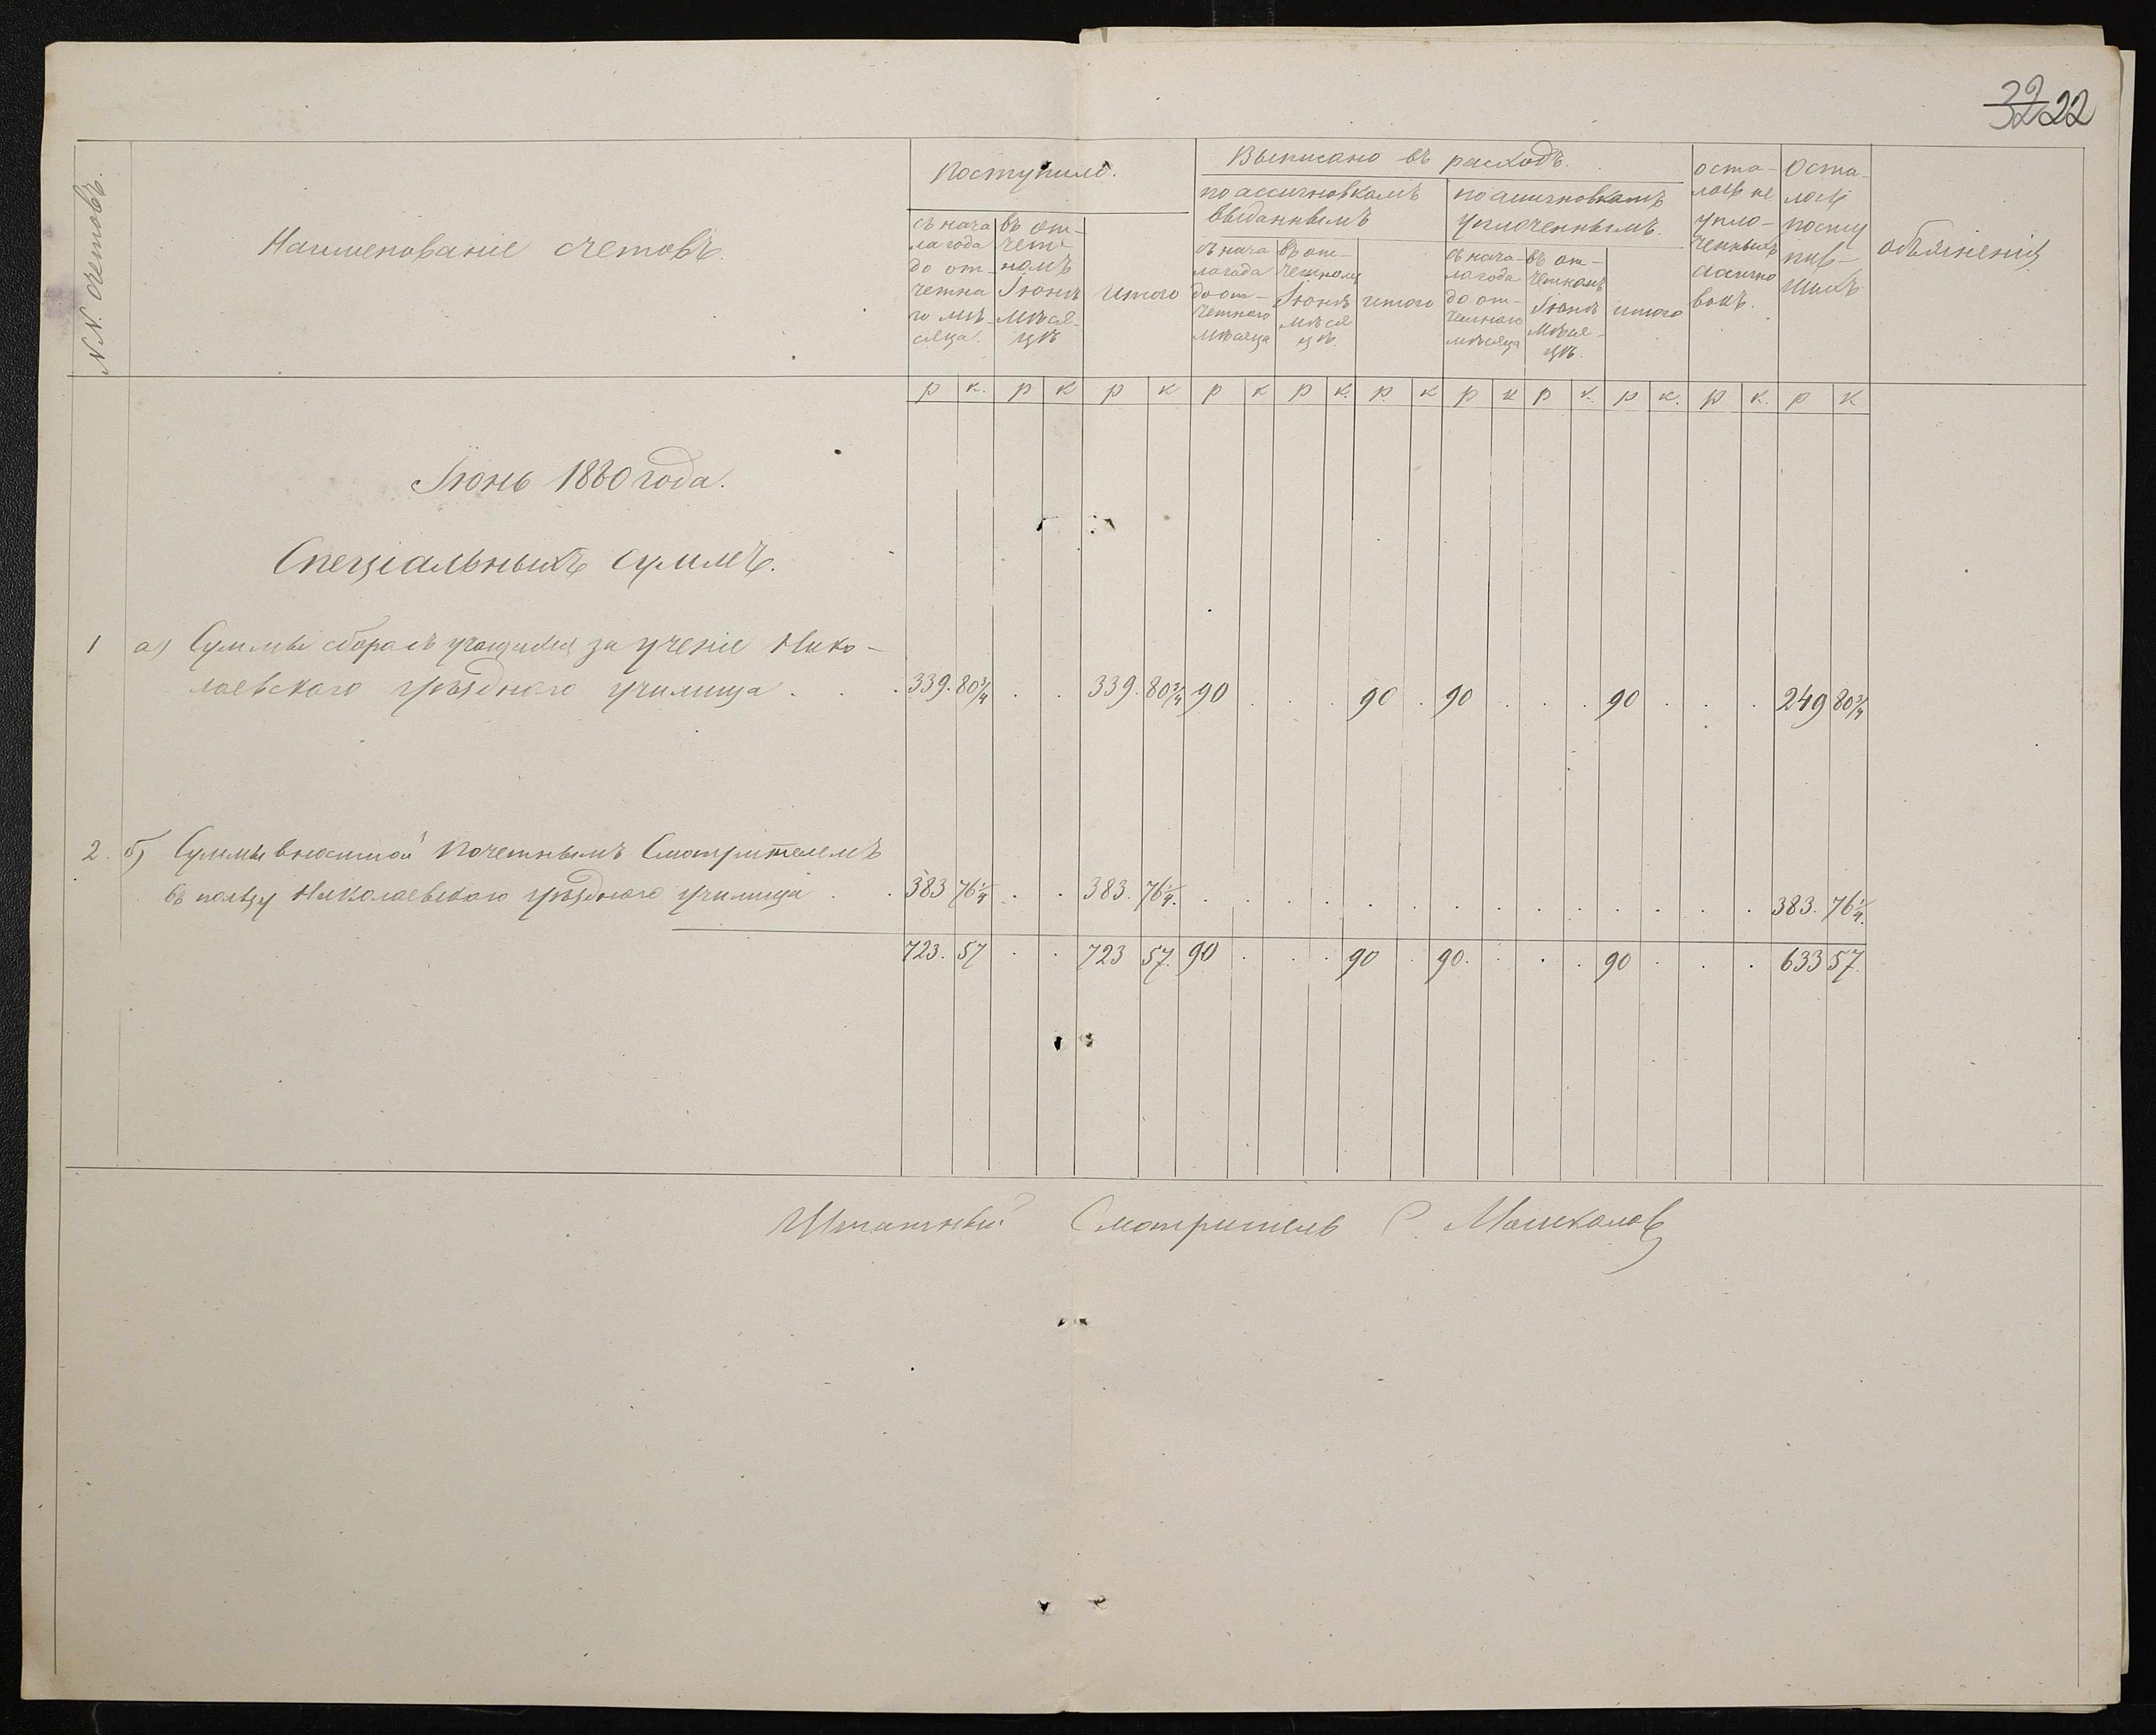 32 22
N.N. счетовъ.
Наименованіе счетовъ.
Поступило.
съ нача
ла года
до от-
четна
го мѣ-
сяца.
въ от-
чет-
номъ
Іюнѣ
мѣся-
цѣ
итого
Выписано въ расходъ.
по ассигновкамъ
выданнымъ
съ нача
ла года
до от-
четнаго
мѣсяца
въ от-
четномъ
Іюнѣ
мѣся
цѣ.
итого
по ассигновкамъ
уплоченнымъ.
съ нача-
ла года
до от-
четнаго
мѣсяца
въ от-
четномъ
Іюнѣ
мѣся-
цѣ.
итого
оста-
лось не
упло-
ченныхъ
ассигно
вокъ.
Оста-
лось
посту
пив-
шихъ
объясненія
р к. р к р к р к р к. р. к р к р к. р к. р к. р к
Іюнь 1880 года.
Спеціальныхъ суммъ.
1 а) Суммы сбора съ учащихся за ученіе Нико-
лаевскаго уѣзднаго училища . . . 339. 80 3/4 . . 339. 80 3/4 90 . . . 90 . 90 . . . 90 . . . 249 80 3/4
2. б) Суммы вносимой Почетнымъ Смотрителемъ
въ пользу Николаевскаго уѣзднаго училища . . 383 76 1/4 . . 383. 76 1/4. . . . . . . . . . . . . . . 383. 76 1/4.
723. 57 . . 723 57. 90 . . . 90 . 90. . . . 90 . . . 633 57.
Штатный Смотритель С. Машкалов